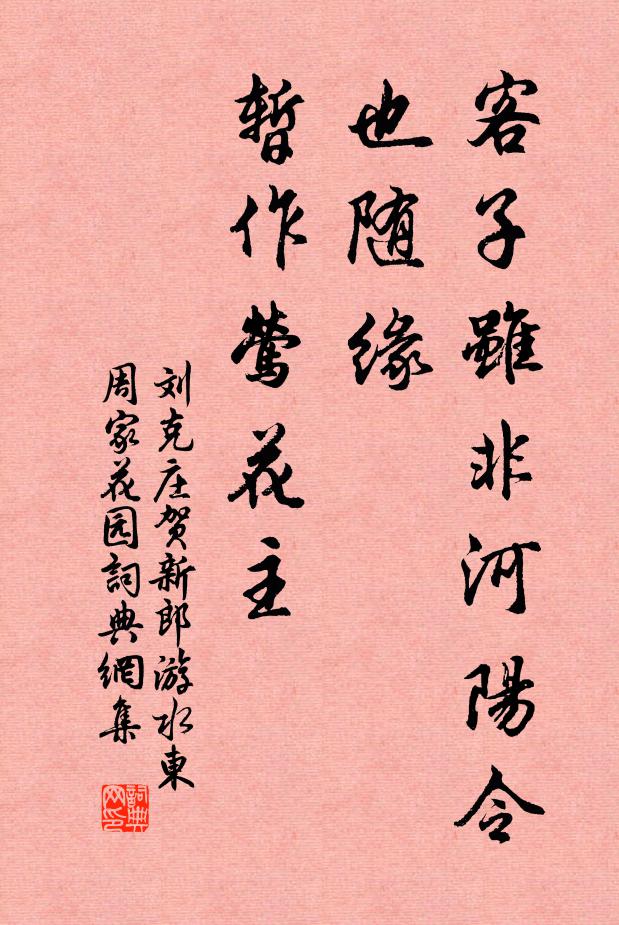 客子雖非河陽令
也随缘
暫作莺花主
刘克庄贺新郎游水東
周家花园詞典網集
詞典网印